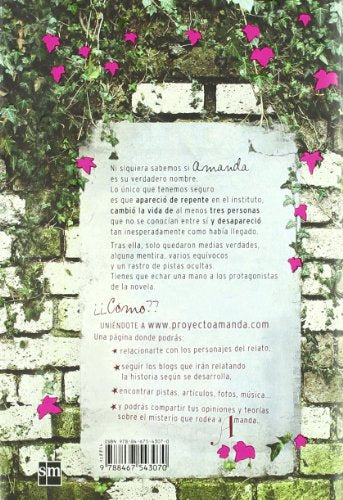 Ni siquiera sabemos si Amanda
es su verdadero nombre.
Lo único que tenemos seguro
es que apareció de repente en el instituto,
cambió la vida de al menos tres personas
que no se conocían entre sí y desapareció
tan inesperadamente como había llegado.
Tras ella, solo quedaron medias verdades,
alguna mentira, varios equívocos
y un rastro de pistas ocultas.
Tienes que echar una mano a los protagonistas
de la novela.
¿¿Como??
UNIÉNDOTE A www.proyectoamanda.com
Una página donde podrás:
★ relacionarte con los personajes del relato,
★ seguir los blogs que irán relatando
la historia según se desarrolla,
★ encontrar pistas, artículos, fotos, música...
★ y podrás compartir tus opiniones y teorías
sobre el misterio que rodea a Amanda.
ISBN: 978-84-675-4307-0
9 788467 543070
sm